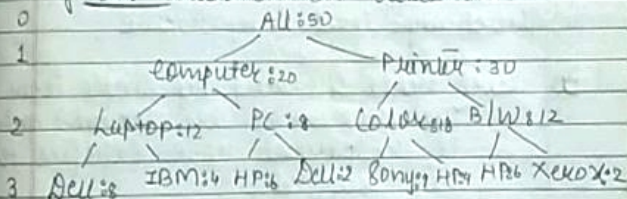 0 All:50
1 Computer:20 Printer:30
2 Laptop:12 PC:8 Color:18 B/W:12
3 Dell:8 IBM:4 HP:6 Dell:2 Sony:9 HP:9 HP:6 Xerox:2